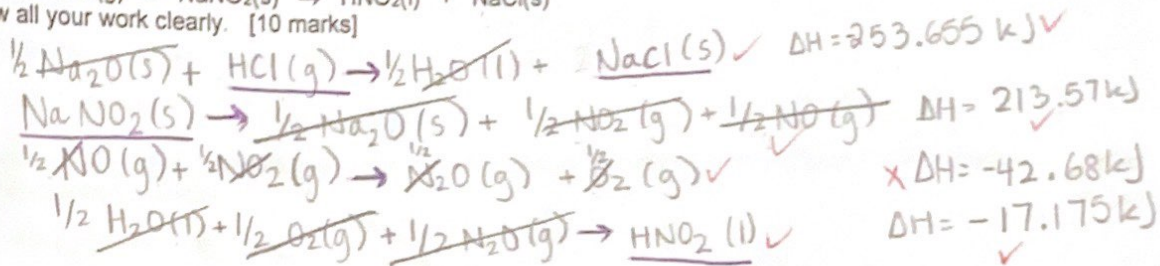 w all your work clearly. [10 marks]
½ Na₂O(s) + HCl(g) → ½ H₂O(l) + NaCl(s) ✓ ΔH = -253.655 kJ ✓
NaNO₂(s) → 1/2 Na₂O(s) + 1/2 NO₂(g) + 1/2 NO(g) ✓ ΔH = 213.57 kJ ✓
1/2 NO(g) + 1/2 NO₂(g) → 1/2 N₂O(g) + 1/2 O₂(g) ✓ x ΔH = -42.68 kJ
1/2 H₂O(l) + 1/2 O₂(g) + 1/2 N₂O(g) → HNO₂(l) ✓ ΔH = -17.175 kJ ✓